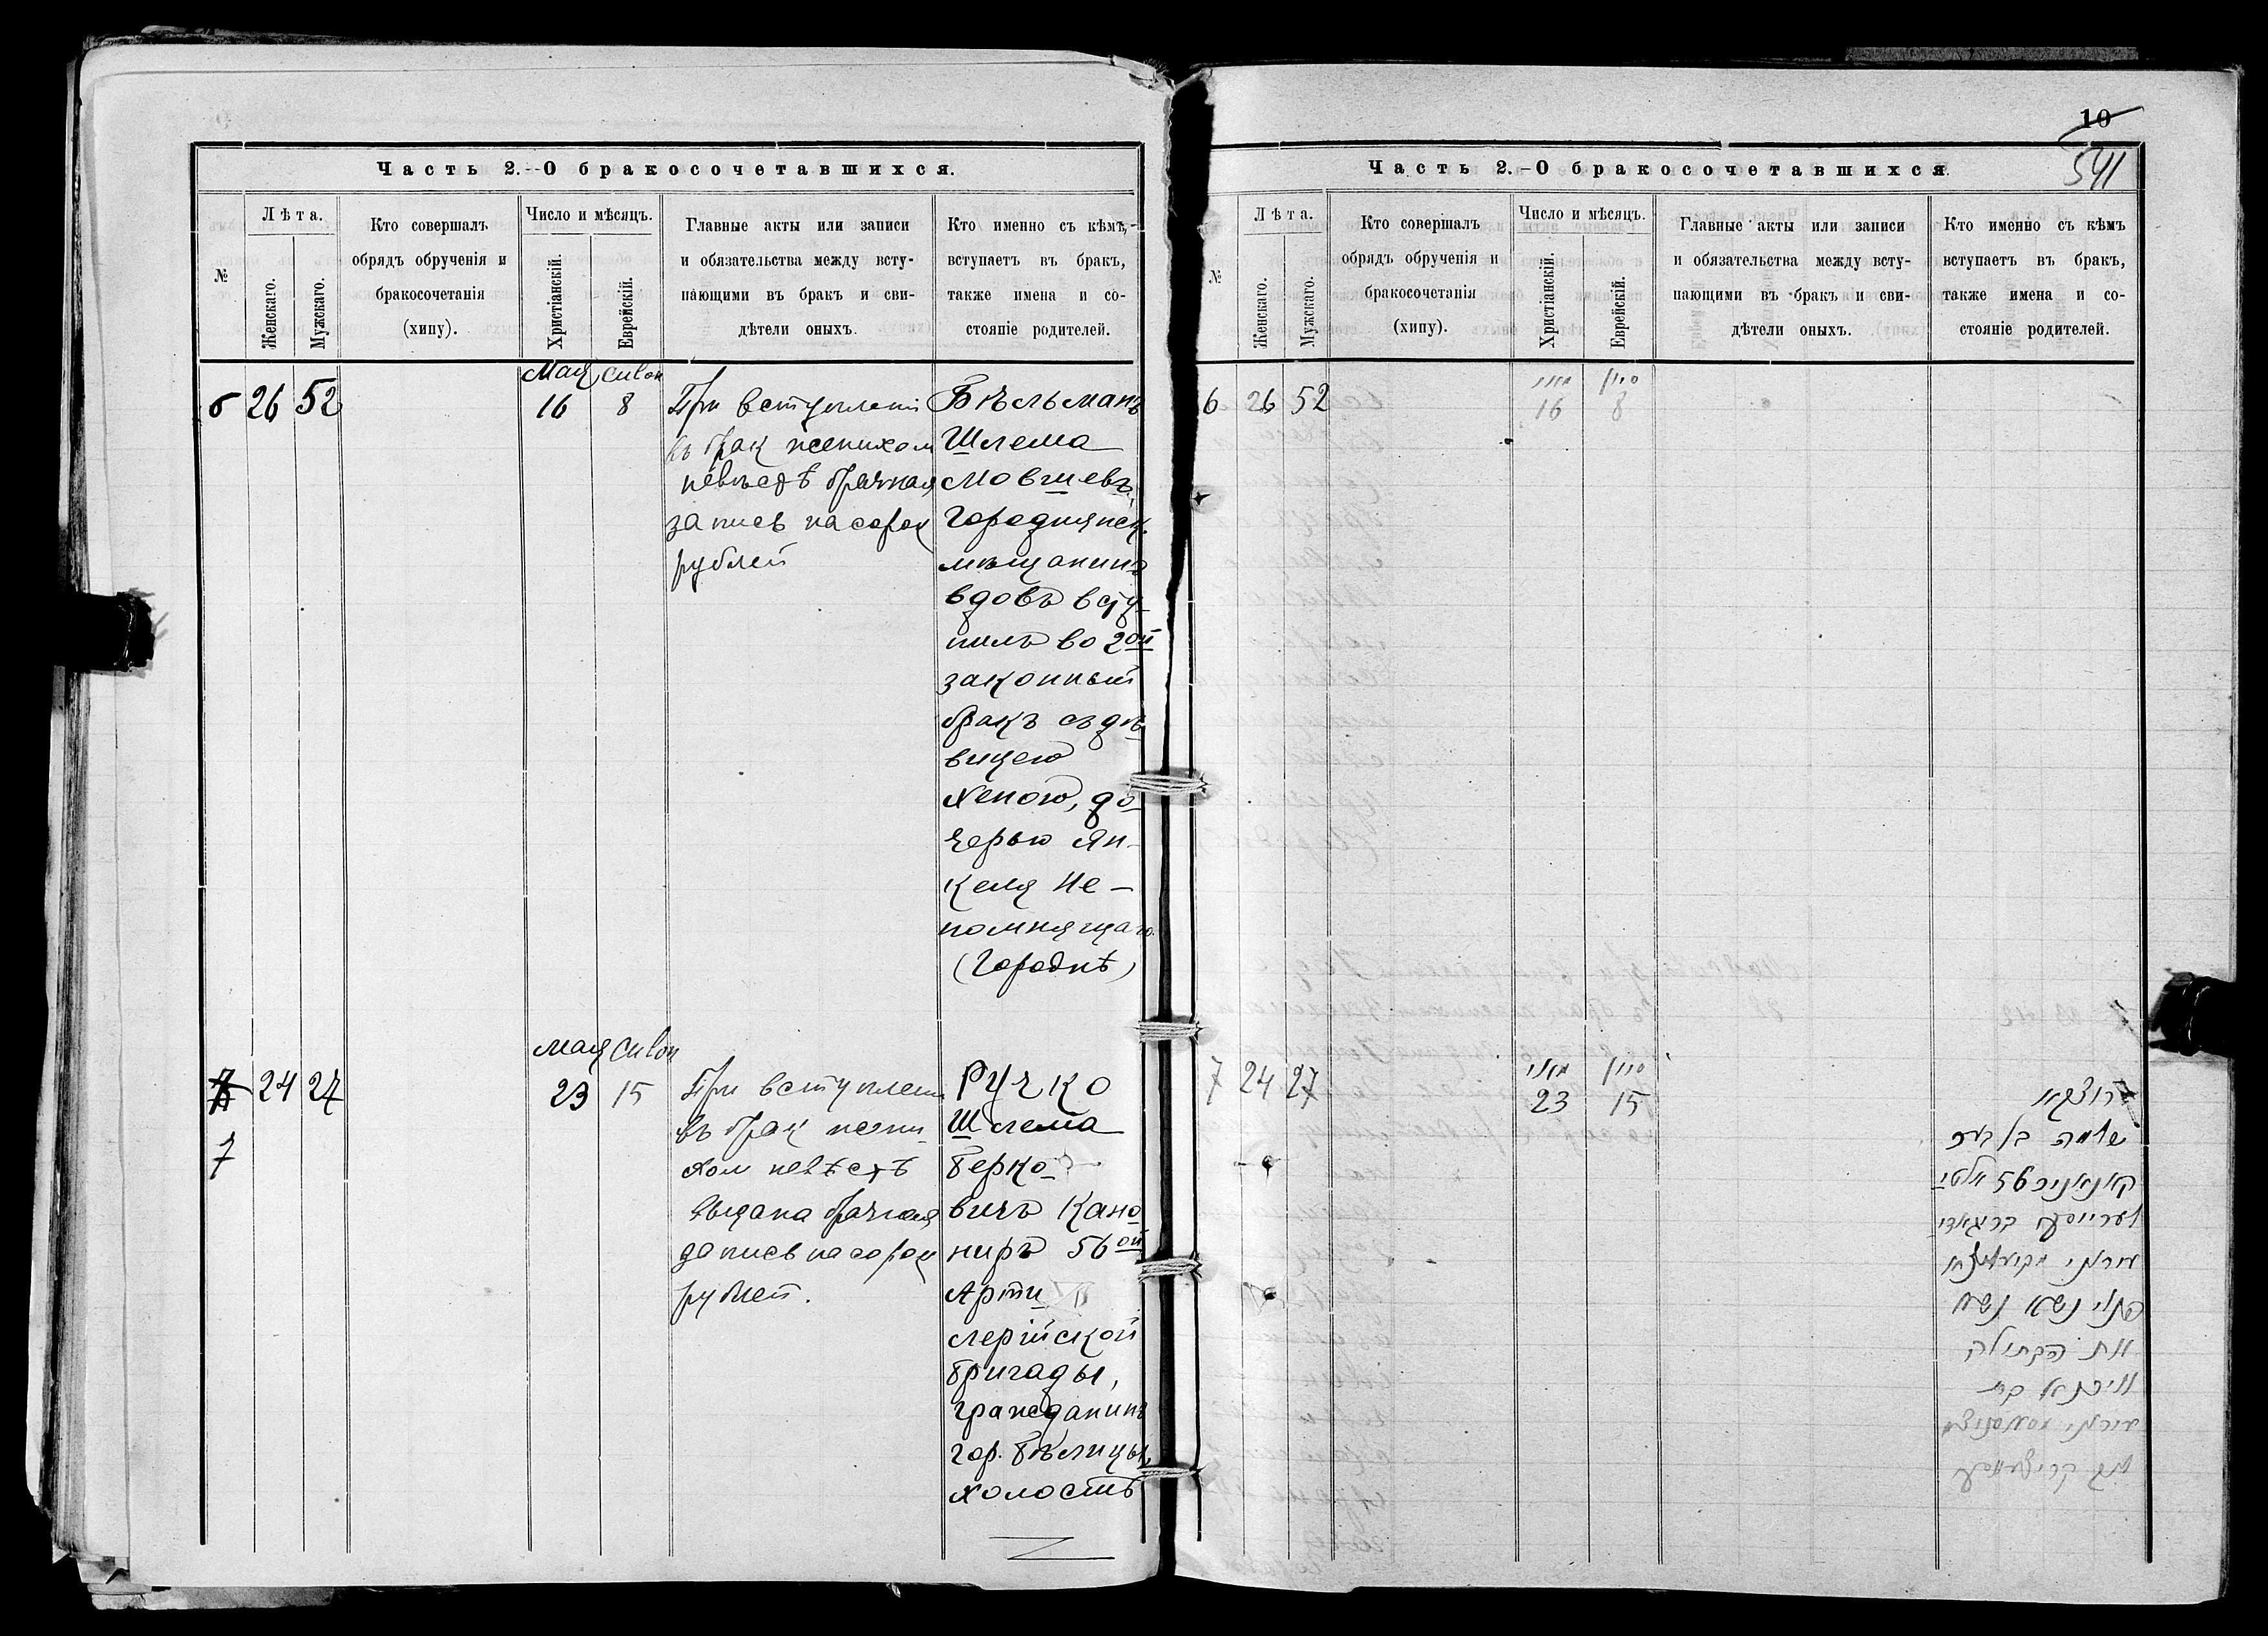 Часть 2.–О бракосочетавшихся.
№
Лѣта.
Женскаго.
Мужскаго.
Кто совершалъ
обрядъ обрученія и
бракосочетанія
(хипу).
Число и мѣсяцъ.
Христіанскій.
Еврейскій.
Главные акты или записи
и обязательства между всту-
пающими въ бракъ и сви-
дѣтели оныхъ.
Кто именно съ кѣмъ,
вступаетъ въ бракъ,
также имена и со-
стояніе родителей.
6 26 52
Мая Сивон
16 8
При вступлені
въ брак женихом
невѣстѣ брачная
запись на сорок
рублей
Бѣльманъ
Шлема
Мовшевъ,
Городнянск.
мѣщанинъ
вдовъ всту-
пилъ во 2ой
законный
бракъ съ дѣ-
вицею
Хеною, до-
черью Ян-
келя Не-
помнящаго.
(Городнѣ)
7 24 27
7
Мая Сивон
23 15
При вступлені
въ брак жени-
хом невѣстѣ
выдана брачная
запись на сорок
рублей.
Ручко
Шлема
Берко-
вичъ Кано-
ниръ 56ой
Арти-
лерійской
бригады,
гражданинъ
гор. Бѣлицы,
холостъ
10
541
Часть 2.–О бракосочетавшихся.
№
Лѣта.
Женскаго.
Мужскаго.
Кто совершалъ
обрядъ обрученія и
бракосочетанія
(хипу).
Число и мѣсяцъ.
Христіанскій.
Еврейскій.
Главные акты или записи
и обязательства между всту-
пающими въ бракъ и сви-
дѣтели оныхъ.
Кто именно съ кѣмъ
вступаетъ въ бракъ,
также имена и со-
стояніе родителей.
6 26 52
מאי סיון
16 8
7 24 27
מאי סיון
23 15
שלמה בן
56
נשא
את הבתולה
בת